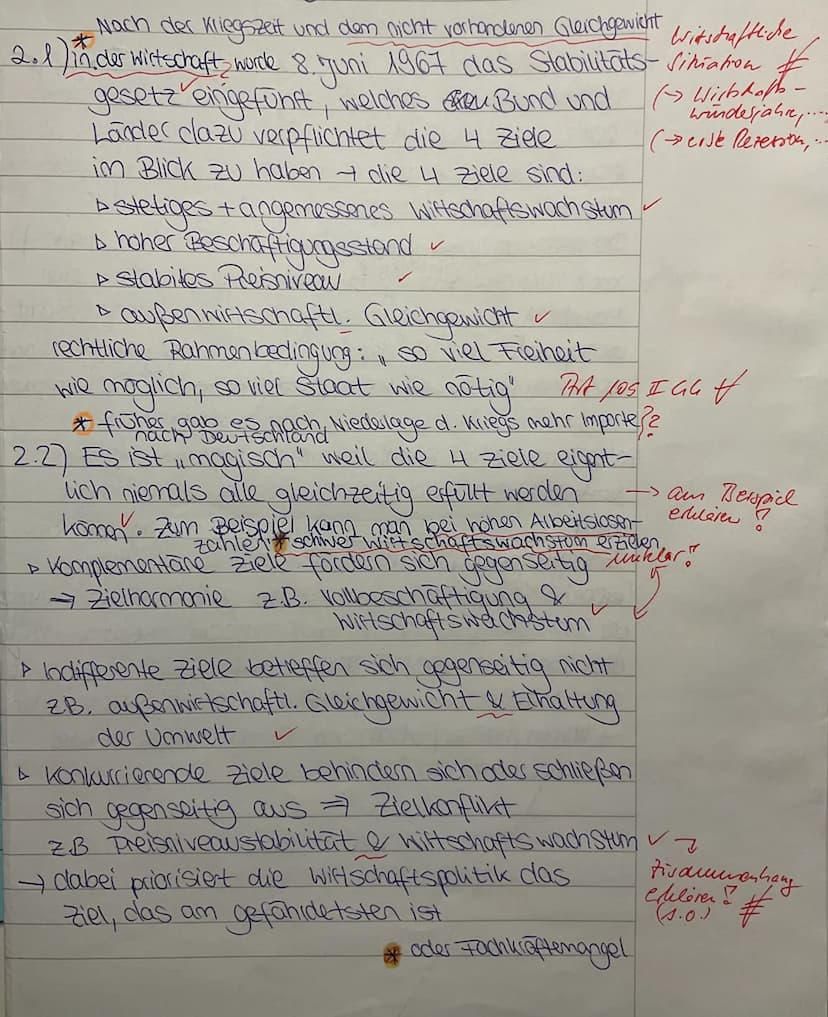 * Nach der Kriegszeit und dem nicht vorhandenen Gleichgewicht
Wirtschaftliche
2.1) in der Wirtschaft, wurde 8. Juni 1967 das Stabilitäts-
Situation #
gesetz eingeführt, welches Bund und
(→ Wirtschafts-
wunderjahre, ...
Länder dazu verpflichtet die 4 Ziele
(→ erste Rezession, ...
im Blick zu haben → die 4 Ziele sind:
▹ stetiges + angemessenes Wirtschaftswachstum ✓
▹ hoher Beschäftigungsstand ✓
▹ stabiles Preisniveau ✓
▹ außenwirtschaftl. Gleichgewicht ✓
rechtliche Rahmenbedingung: „so viel Freiheit
wie möglich, so viel Staat wie nötig"
Art 109 II GG
* früher gab es nach Niederlage d. Kriegs mehr Importe ??
nach Deutschland
2.2) Es ist „magisch" weil die 4 Ziele eigent-
lich niemals alle gleichzeitig erfüllt werden
→ am Beispiel
erklären!
können. Zum Beispiel kann man bei hohen Arbeitslosen-
zahlen * schwer Wirtschaftswachstum erzielen
unklar!
▹ Komplementäre Ziele fördern sich gegenseitig
→ Zielharmonie z.B. Vollbeschäftigung &
Wirtschaftswachstum ✓
▹ Indifferente Ziele betreffen sich gegenseitig nicht
z.B. außenwirtschaftl. Gleichgewicht & Erhaltung
der Umwelt ✓
▹ Konkurrierende Ziele behindern sich oder schließen
sich gegenseitig aus ⇒ Zielkonflikt
z.B Preisniveaustabilität & Wirtschaftswachstum ✓
→ dabei priorisiert die Wirtschaftspolitik das
Zusammenhang
erklären!
(s.o.) #
Ziel, das am gefährdetsten ist
* oder Fachkräftemangel